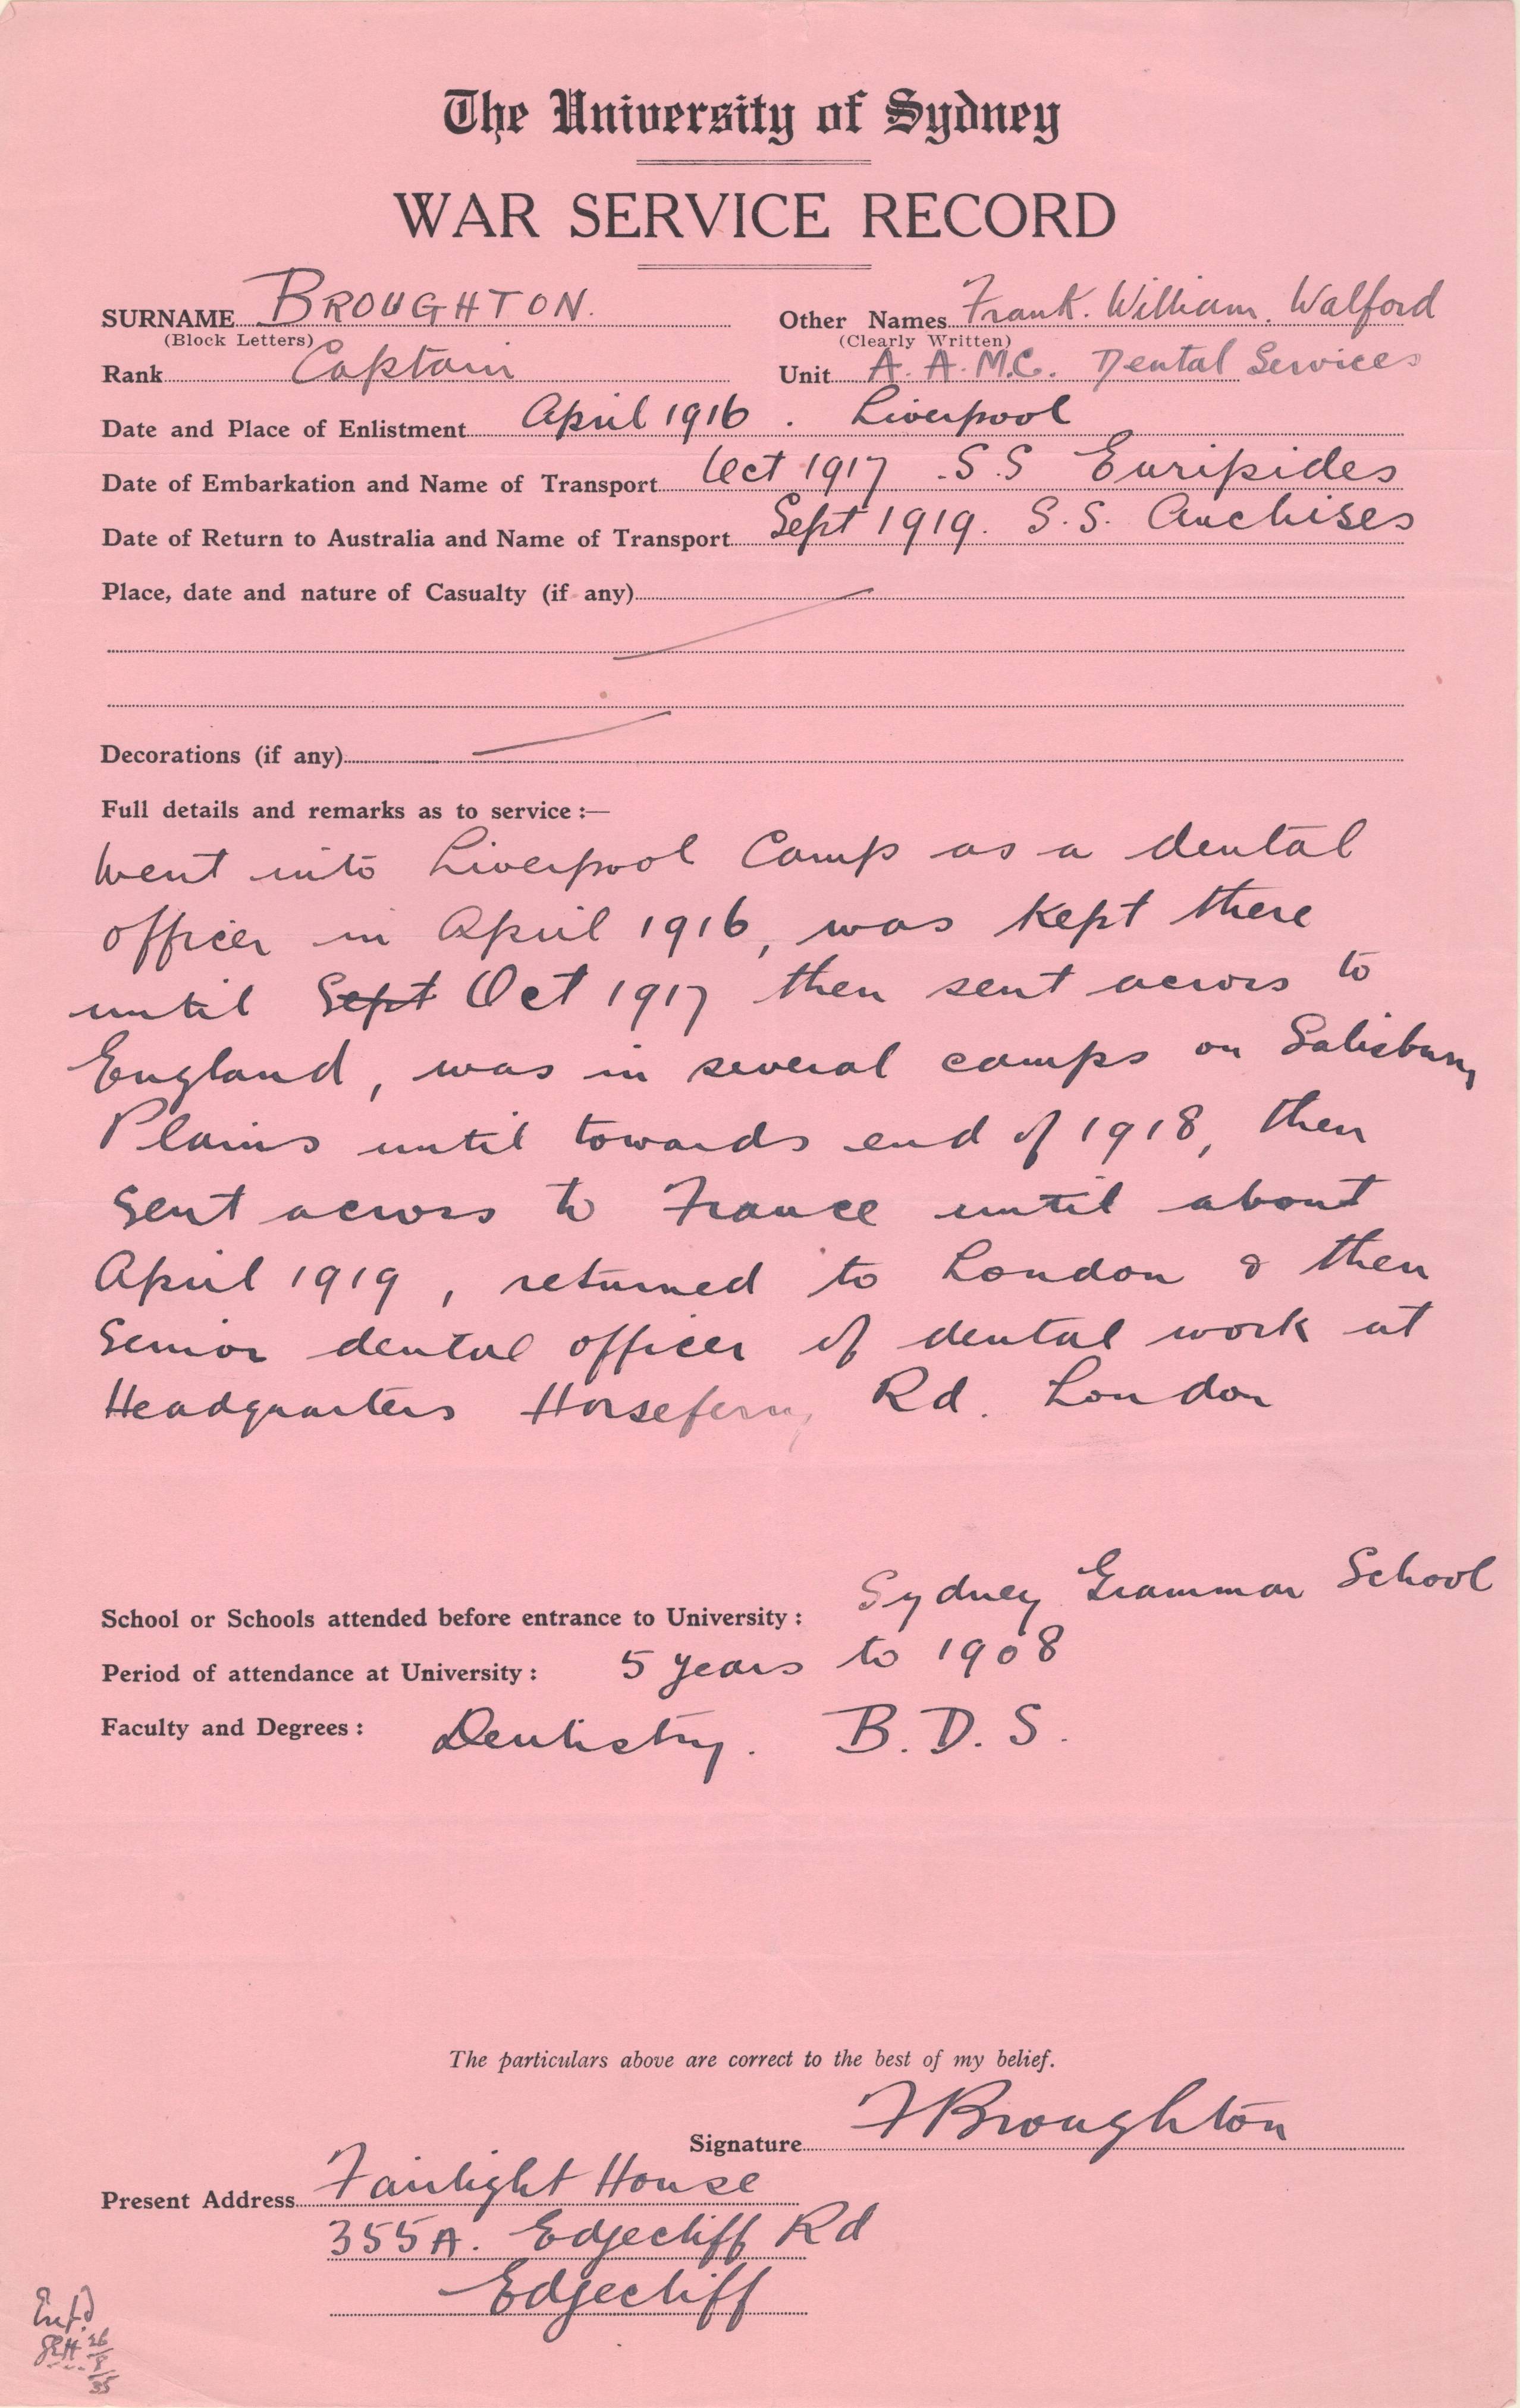 The University of Sydney
WAR SERVICE RECORD
SURNAME BROUGHTON. Other Names Frank. William. Walford
(Block Letters) (Clearly Written)
Rank Captain Unit A. A. M.C. Dental Services
Date and Place of Enlistment April 1916 . Liverpool
Date of Embarkation and Name of Transport Oct 1917 S.S Euripides
Date of Return to Australia and Name of Transport Sept 1919. S.S. Anchises
Place, date and nature of Casualty (if any)
Decorations (if any)
Full details and remarks as to service :—
Went into Liverpool Camp as a dental
officer in April 1916, was kept there
until Sept Oct 1917 then sent across to
England, was in several camps on Salisbury
Plains until towards end of 1918, then
sent across to France until about
April 1919, returned to London & then
Senior dental officer of dental work at
Headquarters Horseferry Rd. London
School or Schools attended before entrance to University : Sydney Grammar School
Period of attendance at University : 5 years to 1908
Faculty and Degrees : Dentistry. B. D. S.
The particulars above are correct to the best of my belief.
Signature FBroughton
Present Address Fairlight House
355A. Edgecliff Rd
Edgecliff
26
8
35